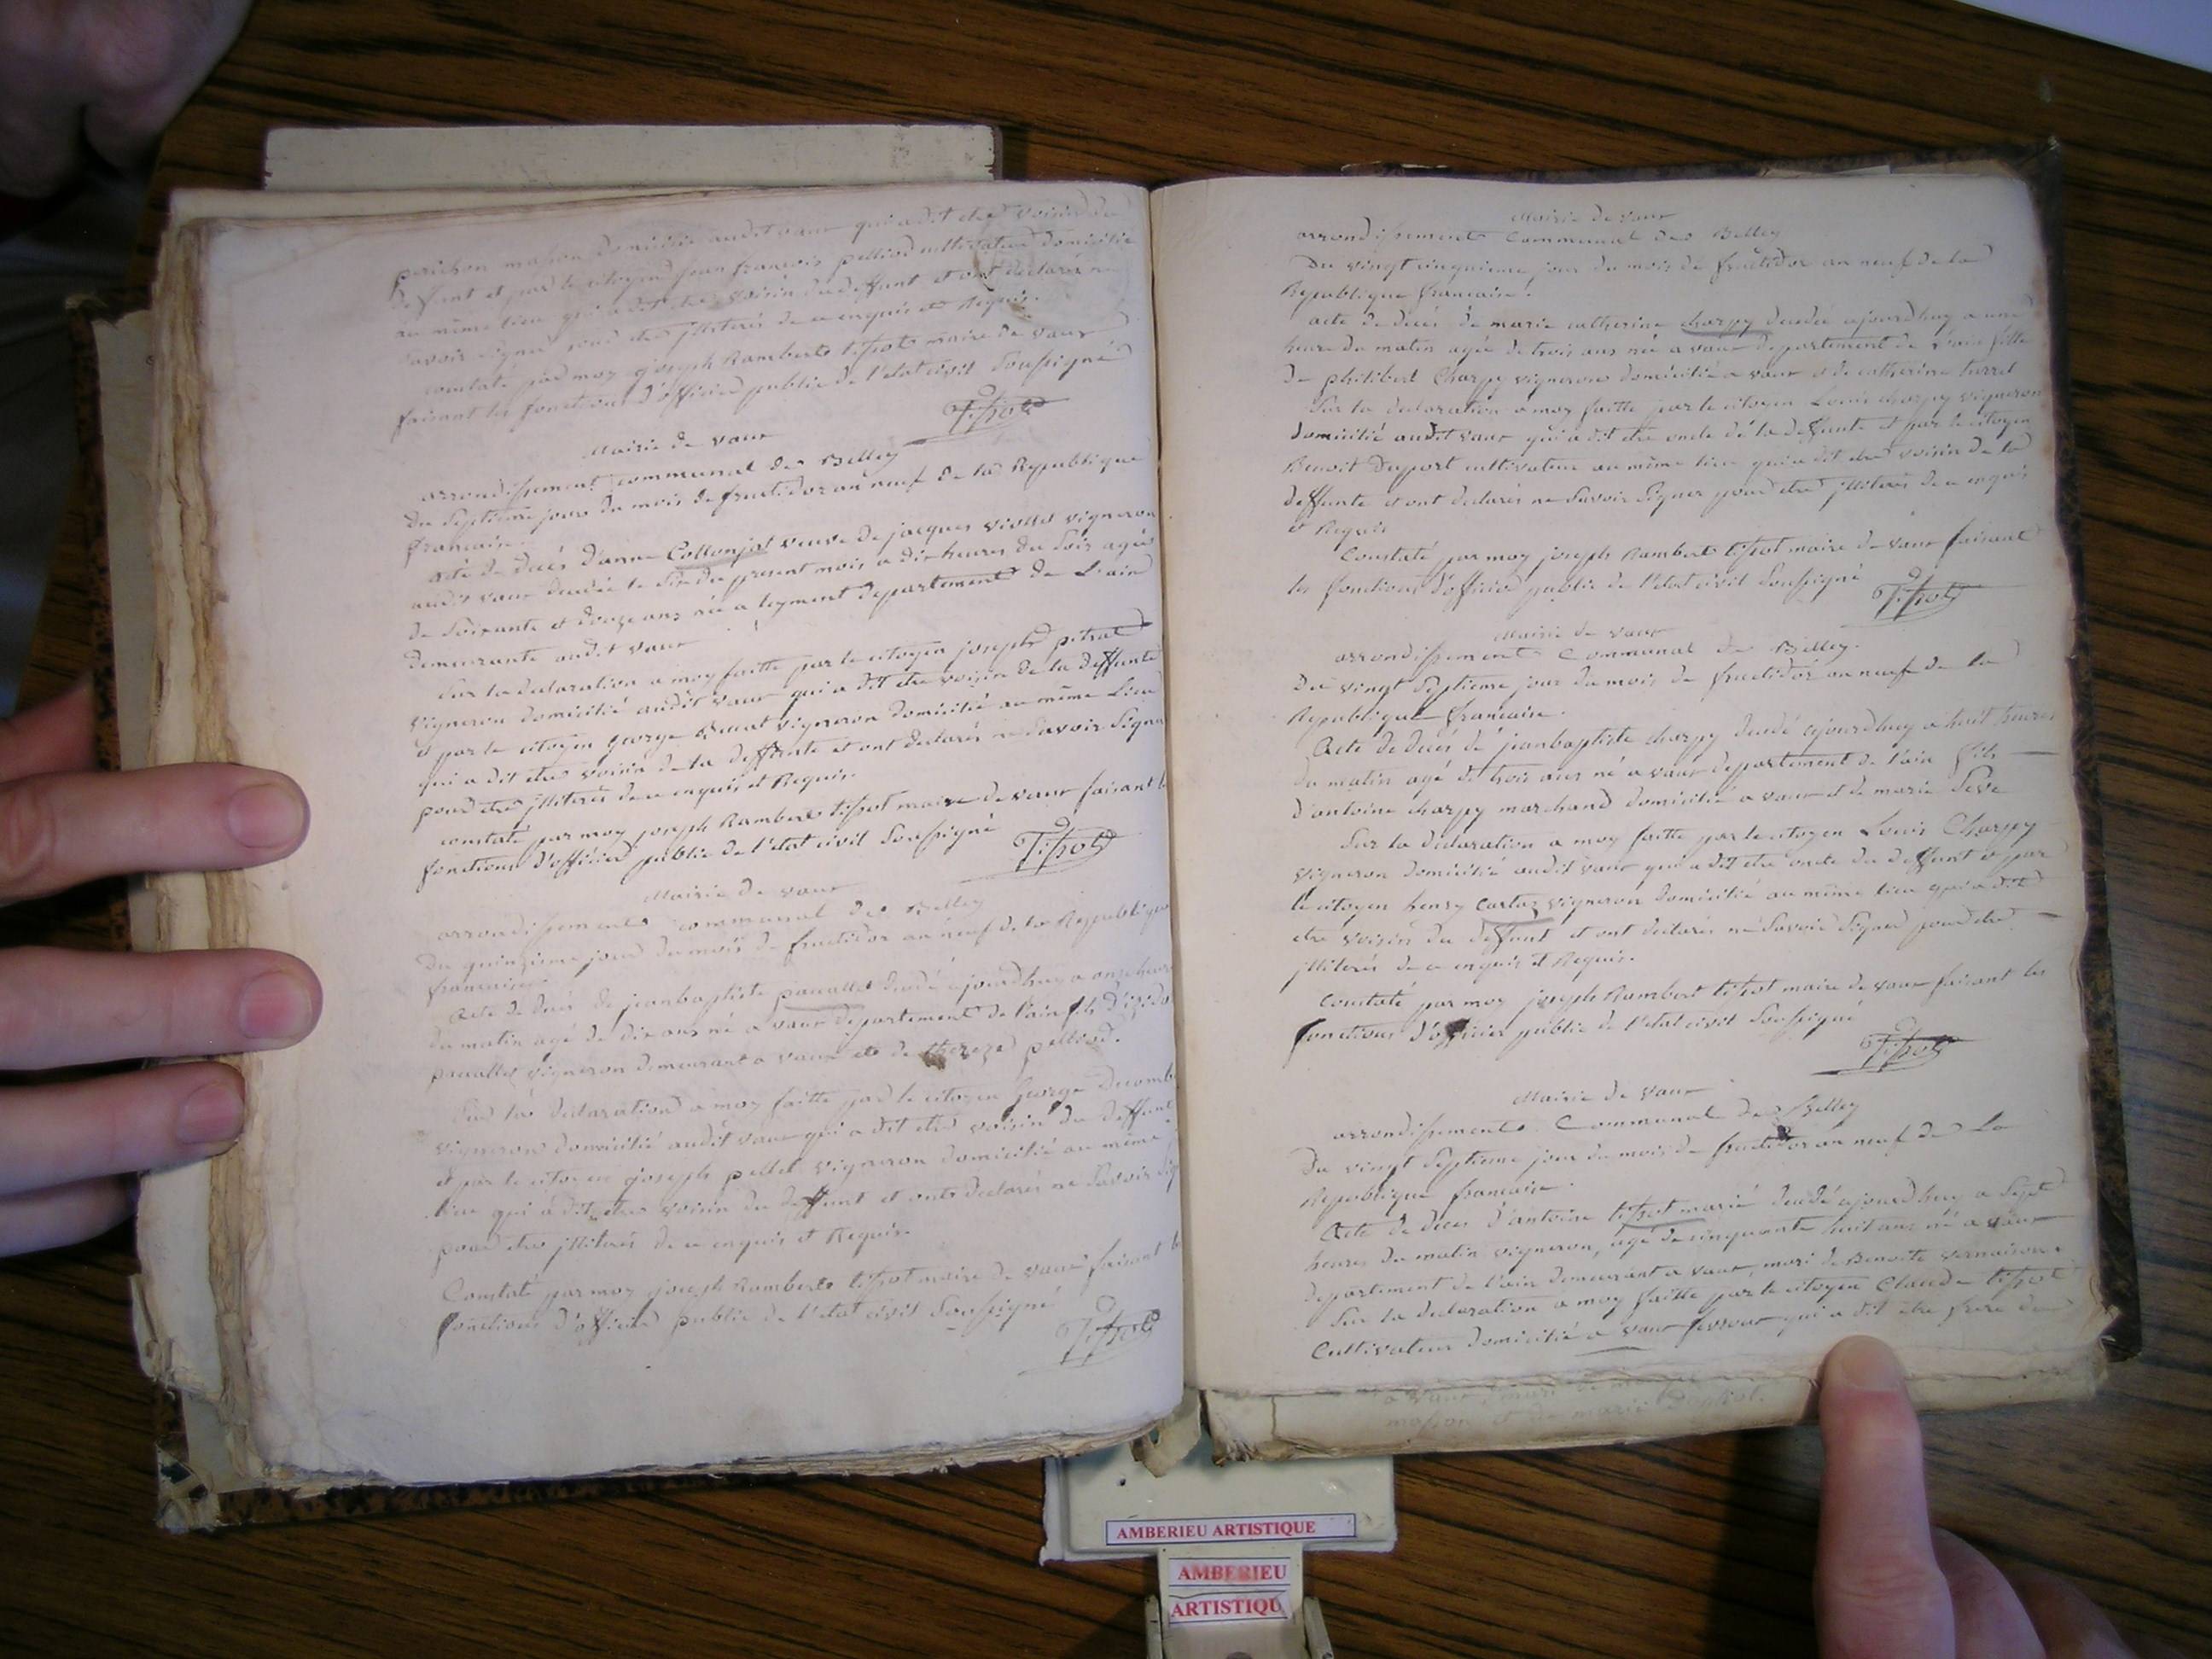 perichon masson domicilié audit vaux qui a dit etre voisin du
deffunt et par le citoyen jean françois pelliod cultivateur domicilié
au même lieu qui a dit etre voisin du deffunt et ont declarés ne
savoir signer pour etre jlliterés de ce enquis et Requis.
constaté par moy joseph Rambert tissot maire de vaux
faisant les fonctions d'officier public de l'etat civil Soussigné
Tissot
Mairie de vaux
arrondissement communal de Belley
du Septieme jour du mois de fructidor an neuf de la Republique
francaise.
acte de decés d'anne Collonjat veuve de jacques viollet vigneron
audit vaux decedée le Six du present mois a dix heures du Soir agée
de Soixante et douze ans née a leyment departement de L'ain
demeurante audit vaux
Sur la declaration a moy faitte par le citoyen joseph pitrat
vigneron domicilié audit vaux qui a dit etre voisin de la deffunte
et par le citoyen george vigneron domicilié au même Lieu
qui a dit etre voisin de la deffunte et ont declarés ne Savoir Signer
pour etre jlliterés de ce enquis et Requis.
constaté par moy joseph Rambert tissot maire de vaux faisant les
fonctions d'officier public de l'etat civil Soussigné
Tissot
Mairie de vaux
arrondissement communal de Belley
Du quinzieme jour du mois de fructidor an neuf de la Republique
francaise
Acte de decés de jeanbaptiste decedé ajourdhuy a onze heures
du matin agé de dix ans né a vaux departement de l'ain fils d'
vigneron demeurant a vaux et de thereze pelliod.
Sur la declaration a moy faitte par le citoyen George
vigneron domicilié audit vaux qui a dit etre voisin du deffunt
et par le citoyen joseph pellet vigneron domicilié au même
lieu qui a dit etre voisin du deffunt et ont declarés ne Savoir
pour etre jlliterés de ce enquis et Requis.
Constaté par moy joseph Rambert tissot maire de vaux faisant les
fonctions d'officier public de l'etat civil Soussigné
Tissot
Mairie de vaux
arrondissement Communal de Belley
Du vingt cinquieme jour du mois de fructidor an neuf de la
Republique francaise.
acte de decés de marie catherine charpy decedée ajourdhuy a une
heure du matin agée de trois ans née a vaux departement de l'ain fille
de philibert Charpy vigneron domicilié a vaux et de catherine
Sur la declaration a moy faitte par le citoyen Louis charpy vigneron
domicilié audit vaux qui a dit etre oncle de la deffunte et par le citoyen
Benoit Duport cultivateur au même lieu qui a dit etre voisin de la
deffunte et ont declarés ne Savoir Signer pour etre jlliterés de ce enquis
et Requis
Constaté par moy joseph Rambert tissot maire de vaux faisant
les fonctions d'officier public de l'etat civil Soussigné
Tissot
Mairie de vaux
arrondissement Communal de Belley.
Du vingt Septieme jour du mois de fructidor an neuf de la
Republique francaise.
Acte de decés de jeanbaptiste charpy decedé ajourdhuy a huit heures
du matin agé de trois ans né a vaux departement de l'ain fils
d'antoine charpy marchand domicilié a vaux et de marie Seve
Sur la declaration a moy faitte par le citoyen Louis Charpy
vigneron domicilié audit vaux qui a dit etre oncle du deffunt et par
le citoyen henry Cartaz vigneron domicilié au même lieu qui a dit
etre voisin du deffunt et ont declarés ne Savoir Signer pour etre
jlliterés de ce enquis et Requis.
Constaté par moy joseph Rambert tissot maire de vaux faisant les
fonctions d'officier public de l'etat civil Soussigné
Tissot
Mairie de vaux
arrondissement Communal de Belley
Du vingt Septieme jour du mois de fructidor an neuf de La
Republique francaise.
Acte de deces d'antoine tissot marié decedé ajourdhuy a Sept
heures du matin vigneron, agé de cinquante huit ans né a vaux
departement de l'ain demeurant a vaux, mari de Benoite vernaison.
Sur la declaration a moy faitte par le citoyen Claude tissot
Cultivateur domicilié a vaux fevroux qui a dit être frere du
masson et de marie
AMBERIEU ARTISTIQUE
AMBERIEU
ARTISTIQU